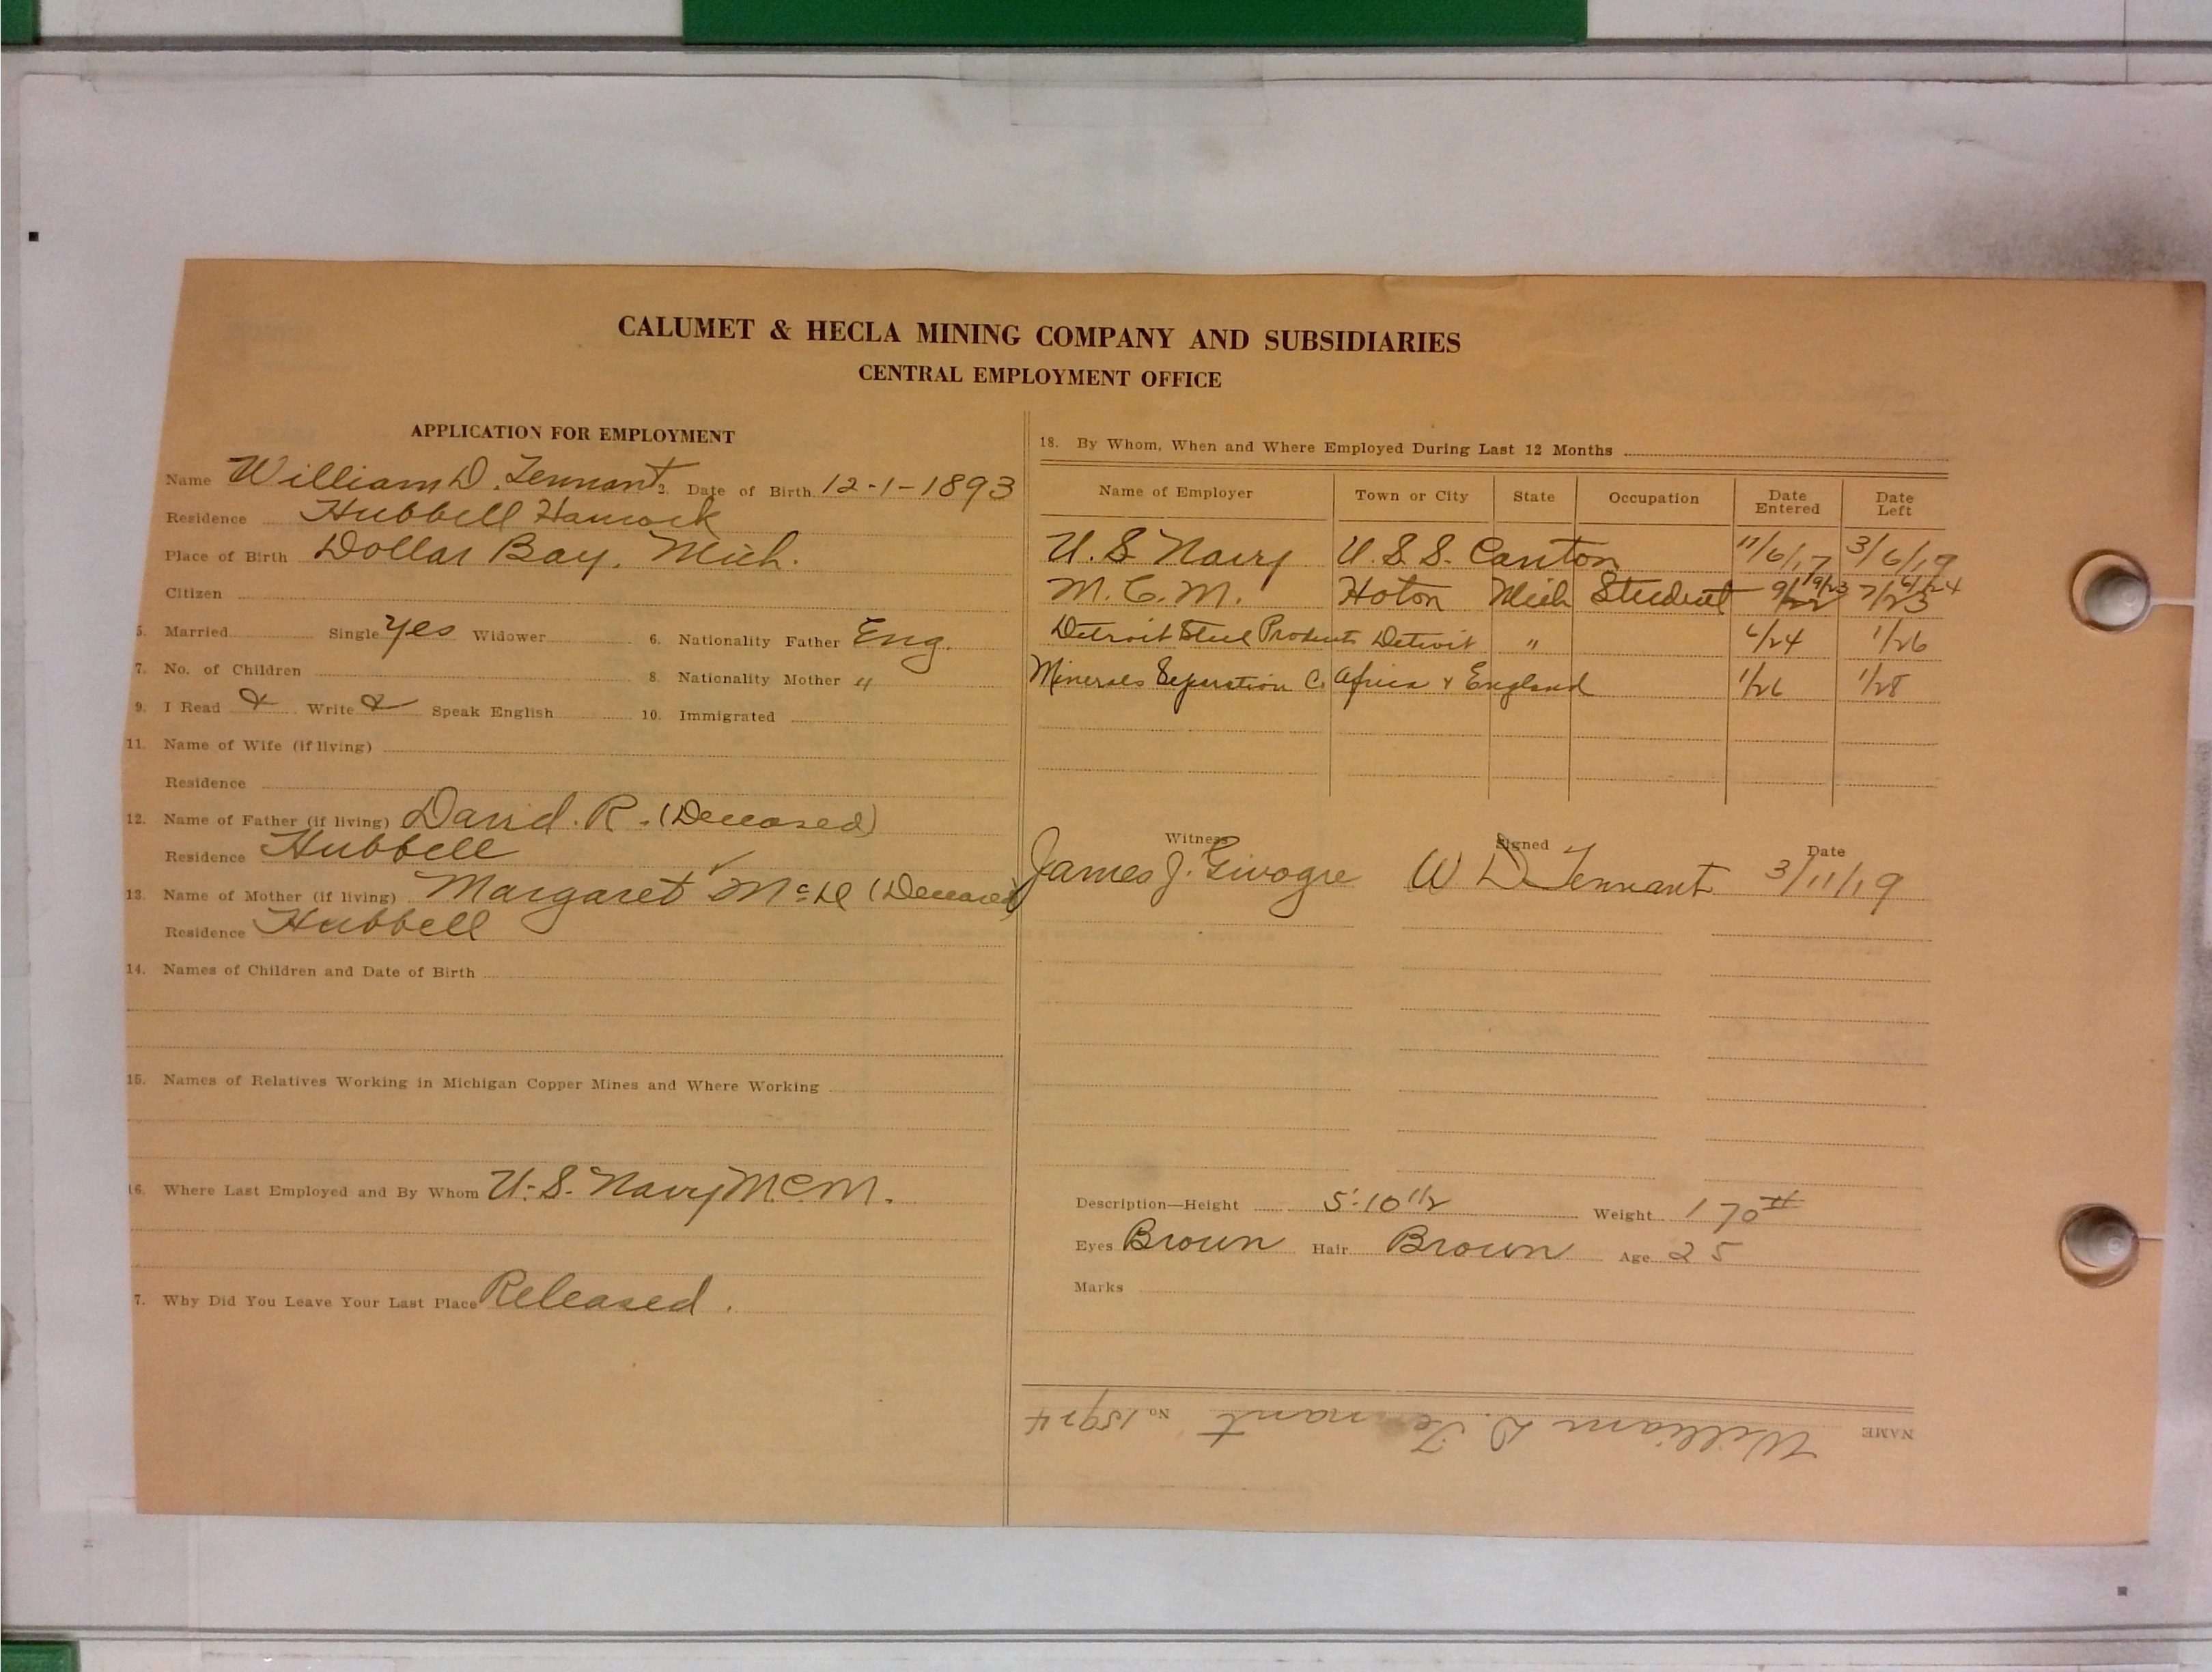 CALUMET & HECLA MINING COMPANY AND SUBSIDIARIES
CENTRAL EMPLOYMENT OFFICE
APPLICATION FOR EMPLOYMENT
Name William D. Tennant 2. Date of Birth 12-1-1893
Residence Hubbell Hancock
Place of Birth Dollar Bay, Mich.
Citizen
5. Married Single Yes Widower 6. Nationality Father Eng.
7. No. of Children 8 Nationality Mother "
9. I Read & Write & Speak English 10. Immigrated
11. Name of Wife (if living)
Residence
12. Name of Father (if living) David. R. (Deceased)
Residence Hubbell
13. Name of Mother (if living) Margaret (Deceased)
Residence Hubbell
14. Names of Children and Date of Birth
15. Names of Relatives Working in Michigan Copper Mines and Where Working
16. Where Last Employed and By Whom U.S. Navy M.C.M.
7. Why Did You Leave Your Last Place Released.
18. By Whom, When and Where Employed During Last 12 Months
Name of Employer Town or City State Occupation Date Entered Date Left
U.S. Navy U.S.S. Canton 11/6/17 3/6/19
M.C.M. Hoton Mich Student 9/22 9/23 7/23 6/24
Detroit Steel Products Detroit " 6/24 1/26
Minerals Separation C. Africa & England 1/26 1/28
Witness Signed Date
James J. W D Tennant 3/11/19
Description—Height 5'-10 1/2 Weight 170 #
Eyes Brown Hair Brown Age 25
Marks
NAME William D. Tennant No. 15924